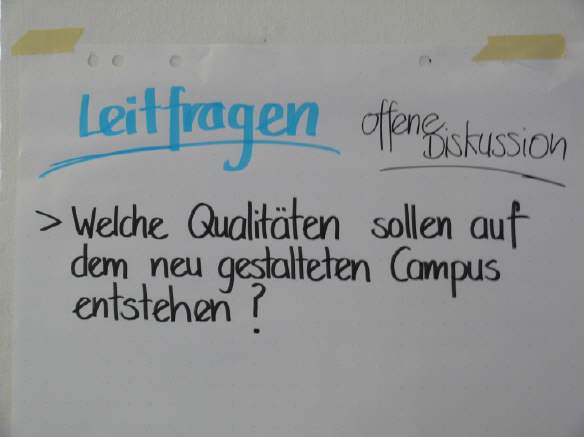 Leitfragen
offene
Diskussion
> Welche Qualitäten sollen auf
dem neu gestalteten Campus
entstehen ?